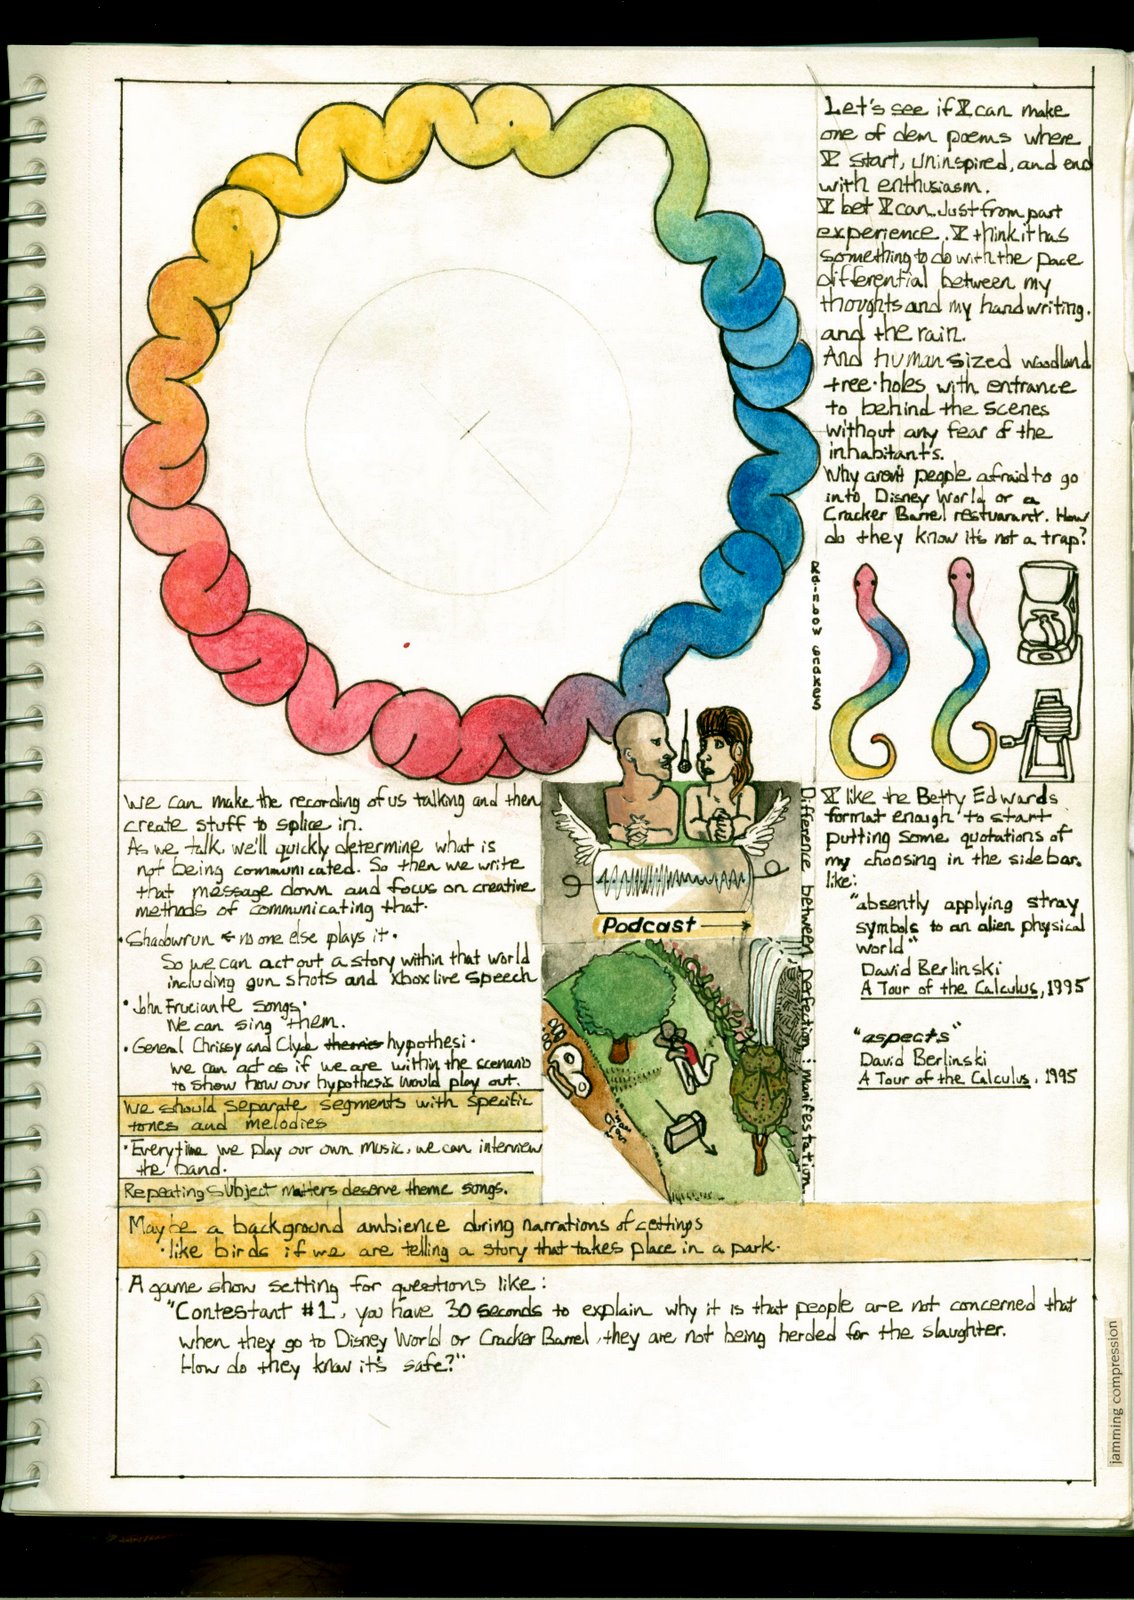 Let's see if I can make
one of dem poems where
I start, uninspired, and end
with enthusiasm.
I bet I can. Just from part
experience. I think it has
something to do with the pace
differential between my
thoughts and my handwriting.
and the rain.
And human sized woodland
tree-holes with entrance
to behind the scenes
without any fear of the
inhabitants.
Why aren't people afraid to go
into Disney World or a
Cracker Barrel restuarant. How
do they know it's not a trap?
Rainbow snakes
We can make the recording of us talking and then
create stuff to splice in.
As we talk, we'll quickly determine what is
not being communicated. So then we write
that message down and focus on creative
methods of communicating that.
• Shadowrun ← no one else plays it.
So we can act out a story within that world
including gun shots and xbox live speech
• John Fruciante songs.
We can sing them.
• General Chrissy and Clyde theories hypothesi.
we can act as if we are within the scenario
to show how our hypothesis would play out.
We should separate segments with specific
tones and melodies
• Everytime we play our own music, we can interview
the band.
Repeating subject matters deserve theme songs.
Podcast
Difference between perfection : manifestation.
I like the Betty Edwards
format enough to start
putting some quotations of
my choosing in the sidebar.
like:
"absently applying stray
symbols to an alien physical
world"
David Berlinski
A Tour of the Calculus, 1995
"aspects"
David Berlinski
A Tour of the Calculus, 1995
Maybe a background ambience during narrations of settings
• like birds if we are telling a story that takes place in a park.
A game show setting for questions like:
"Contestant #1, you have 30 seconds to explain why it is that people are not concerned that
when they go to Disney World or Cracker Barrel, they are not being herded for the slaughter.
How do they know it's safe?"
jamming compression